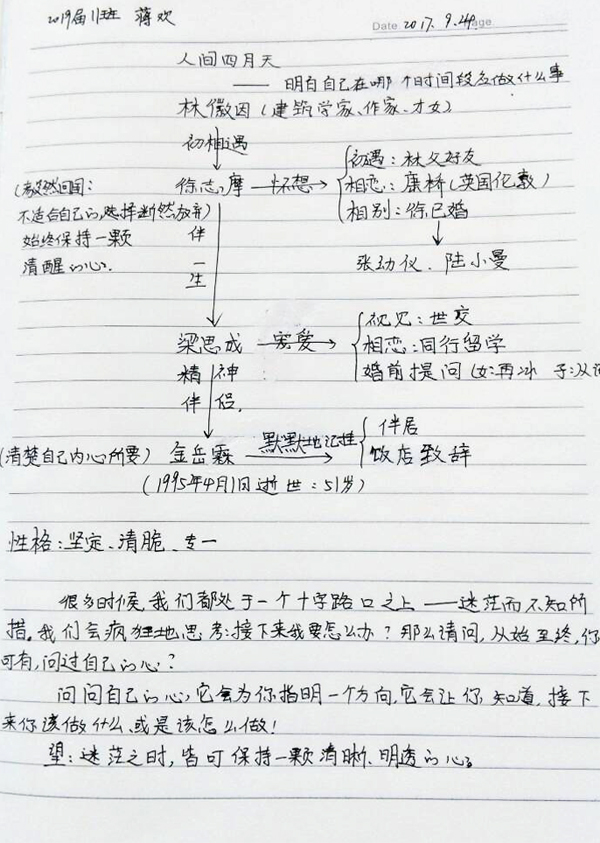 2019届11班 蒋欢
Date 2017. 9.24 Page
人间四月天
—— 明白自己在哪个时间段该做什么事
林徽因(建筑学家、作家、才女)
初相遇
(毅然回国:
不适合自己的选择断然放弃)
始终保持一颗
清醒的心.
徐志摩 怀想
初遇:林父好友
相恋:康桥(英国伦敦)
相别:徐已婚
张幼仪、陆小曼
伴一生
梁思成 宠爱
初见:世交
相恋:同行留学
婚前提问(女:再冰 子:从
精神
伴侣,
(清楚自己内心所要) 金岳霖 默默地记挂
伴居
饭店致辞
(1995年4月1日逝世:51岁)
性格:坚定、清脆、专一
很多时候,我们都处于一个十字路口之上——迷茫而不知所
措。我们会疯狂地思考:接下来我要怎么办?那么请问,从始至终,你
可有,问过自己的心?
问问自己的心,它会为你指明一个方向,它会让你知道,接下
来你该做什么、或是该怎么做!
望:迷茫之时,皆可保持一颗清晰、明透的心。